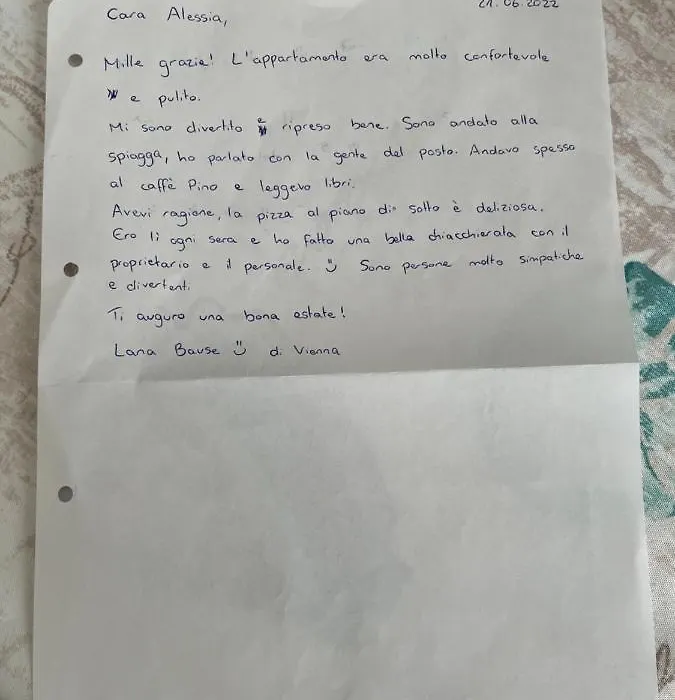 21.06.2022
Cara Alessia,
Mille grazie! L'appartamento era molto confortevole
e pulito.
Mi sono divertito e ripreso bene. Sono andato alla
spiagga, ho parlato con la gente del posto. Andavo spesso
al caffè Pino e leggevo libri.
Avevi ragione, la pizza al piano di sotto è deliziosa.
Ero lì ogni sera e ho fatto una bella chiacchierata con il
proprietario e il personale. Sono persone molto simpatiche
e divertenti.
Ti auguro una bona estate!
Lana Bause di Vienna